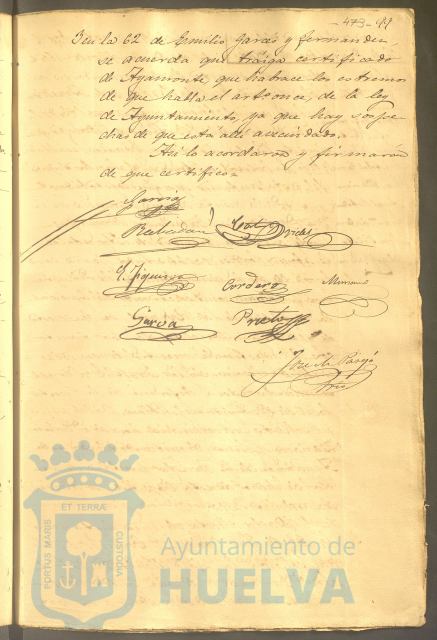 473-99
Y en la 62 de Emilio Garcés y Fernandez,
se acuerda que traiga certificado
de Ayamonte, que habrace los estremos
de que habla el artº once, de la ley
de Ayuntamiento, ya que hay sospe
chas de que está allí avecindado.
Asi lo acordaron y firmarón
de que certifico.
Garcia
Rabadan
Cordero
García Prieto
José de
ET TERRÆ
PORTUS MARIS CUSTODIA
Ayuntamiento de
HUELVA